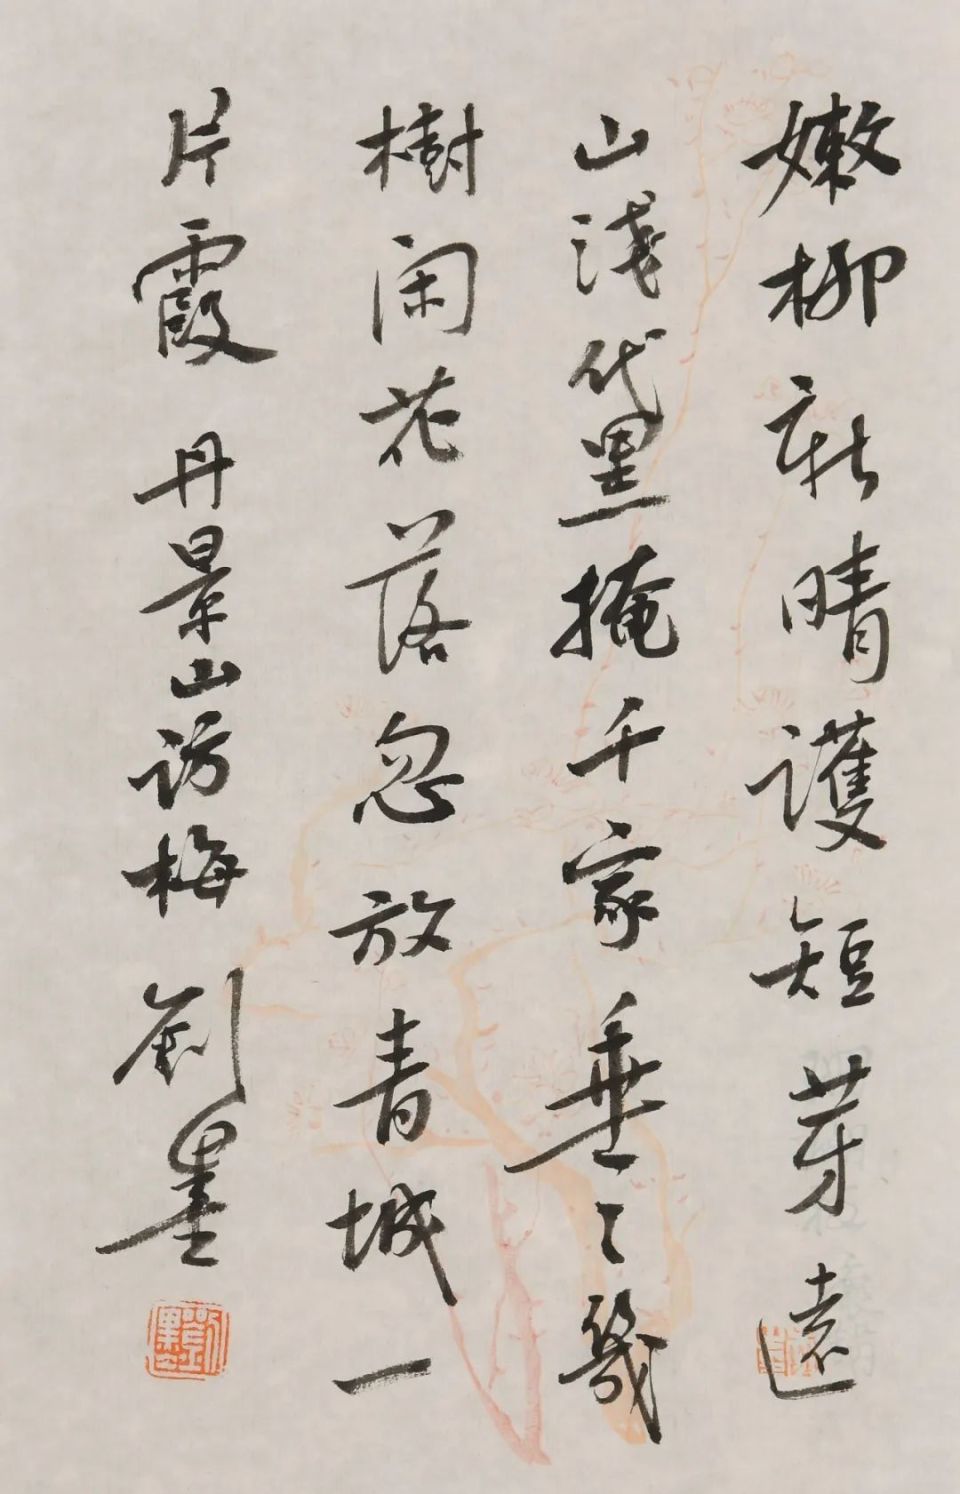 嫩柳新晴護短芽遠
山淺黛掩千家垂垂幾
樹閑花落忽放青城一
片霞 丹景山訪梅 劉墨